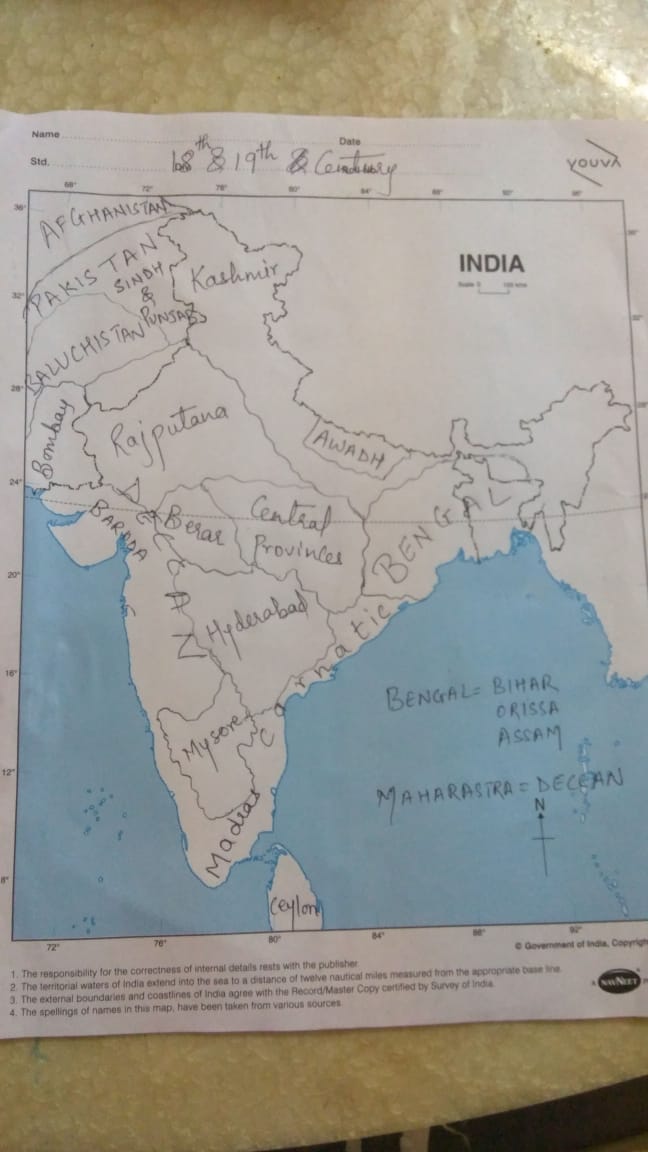 Name
Date
Std.
18th & 19th & Century
YOUVA
68° 72° 76° 80° 84° 88° 92° 96°
36°
AFGHANISTAN
36°
PAKISTAN
SINDH
&
PUNJAB
Kashmir
INDIA
Scale 0 100 kms
32°
32°
BALUCHISTAN
28°
28°
Bombay
Rajputana
AWADH
24°
DECCAN
BARODA
Berar
Central
Provinces
BENGAL
20°
Hyderabad
Carnatic
16°
BENGAL = BIHAR
ORISSA
ASSAM
Mysore
12°
MAHARASTRA = DECCAN
N
Madras
8°
Ceylon
72° 76° 80° 84° 88° 92°
© Government of India, Copyright
1. The responsibility for the correctness of internal details rests with the publisher.
2. The territorial waters of India extend into the sea to a distance of twelve nautical miles measured from the appropriate base line.
3. The external boundaries and coastlines of India agree with the Record/Master Copy certified by Survey of India.
4. The spellings of names in this map, have been taken from various sources.
NAVNEET